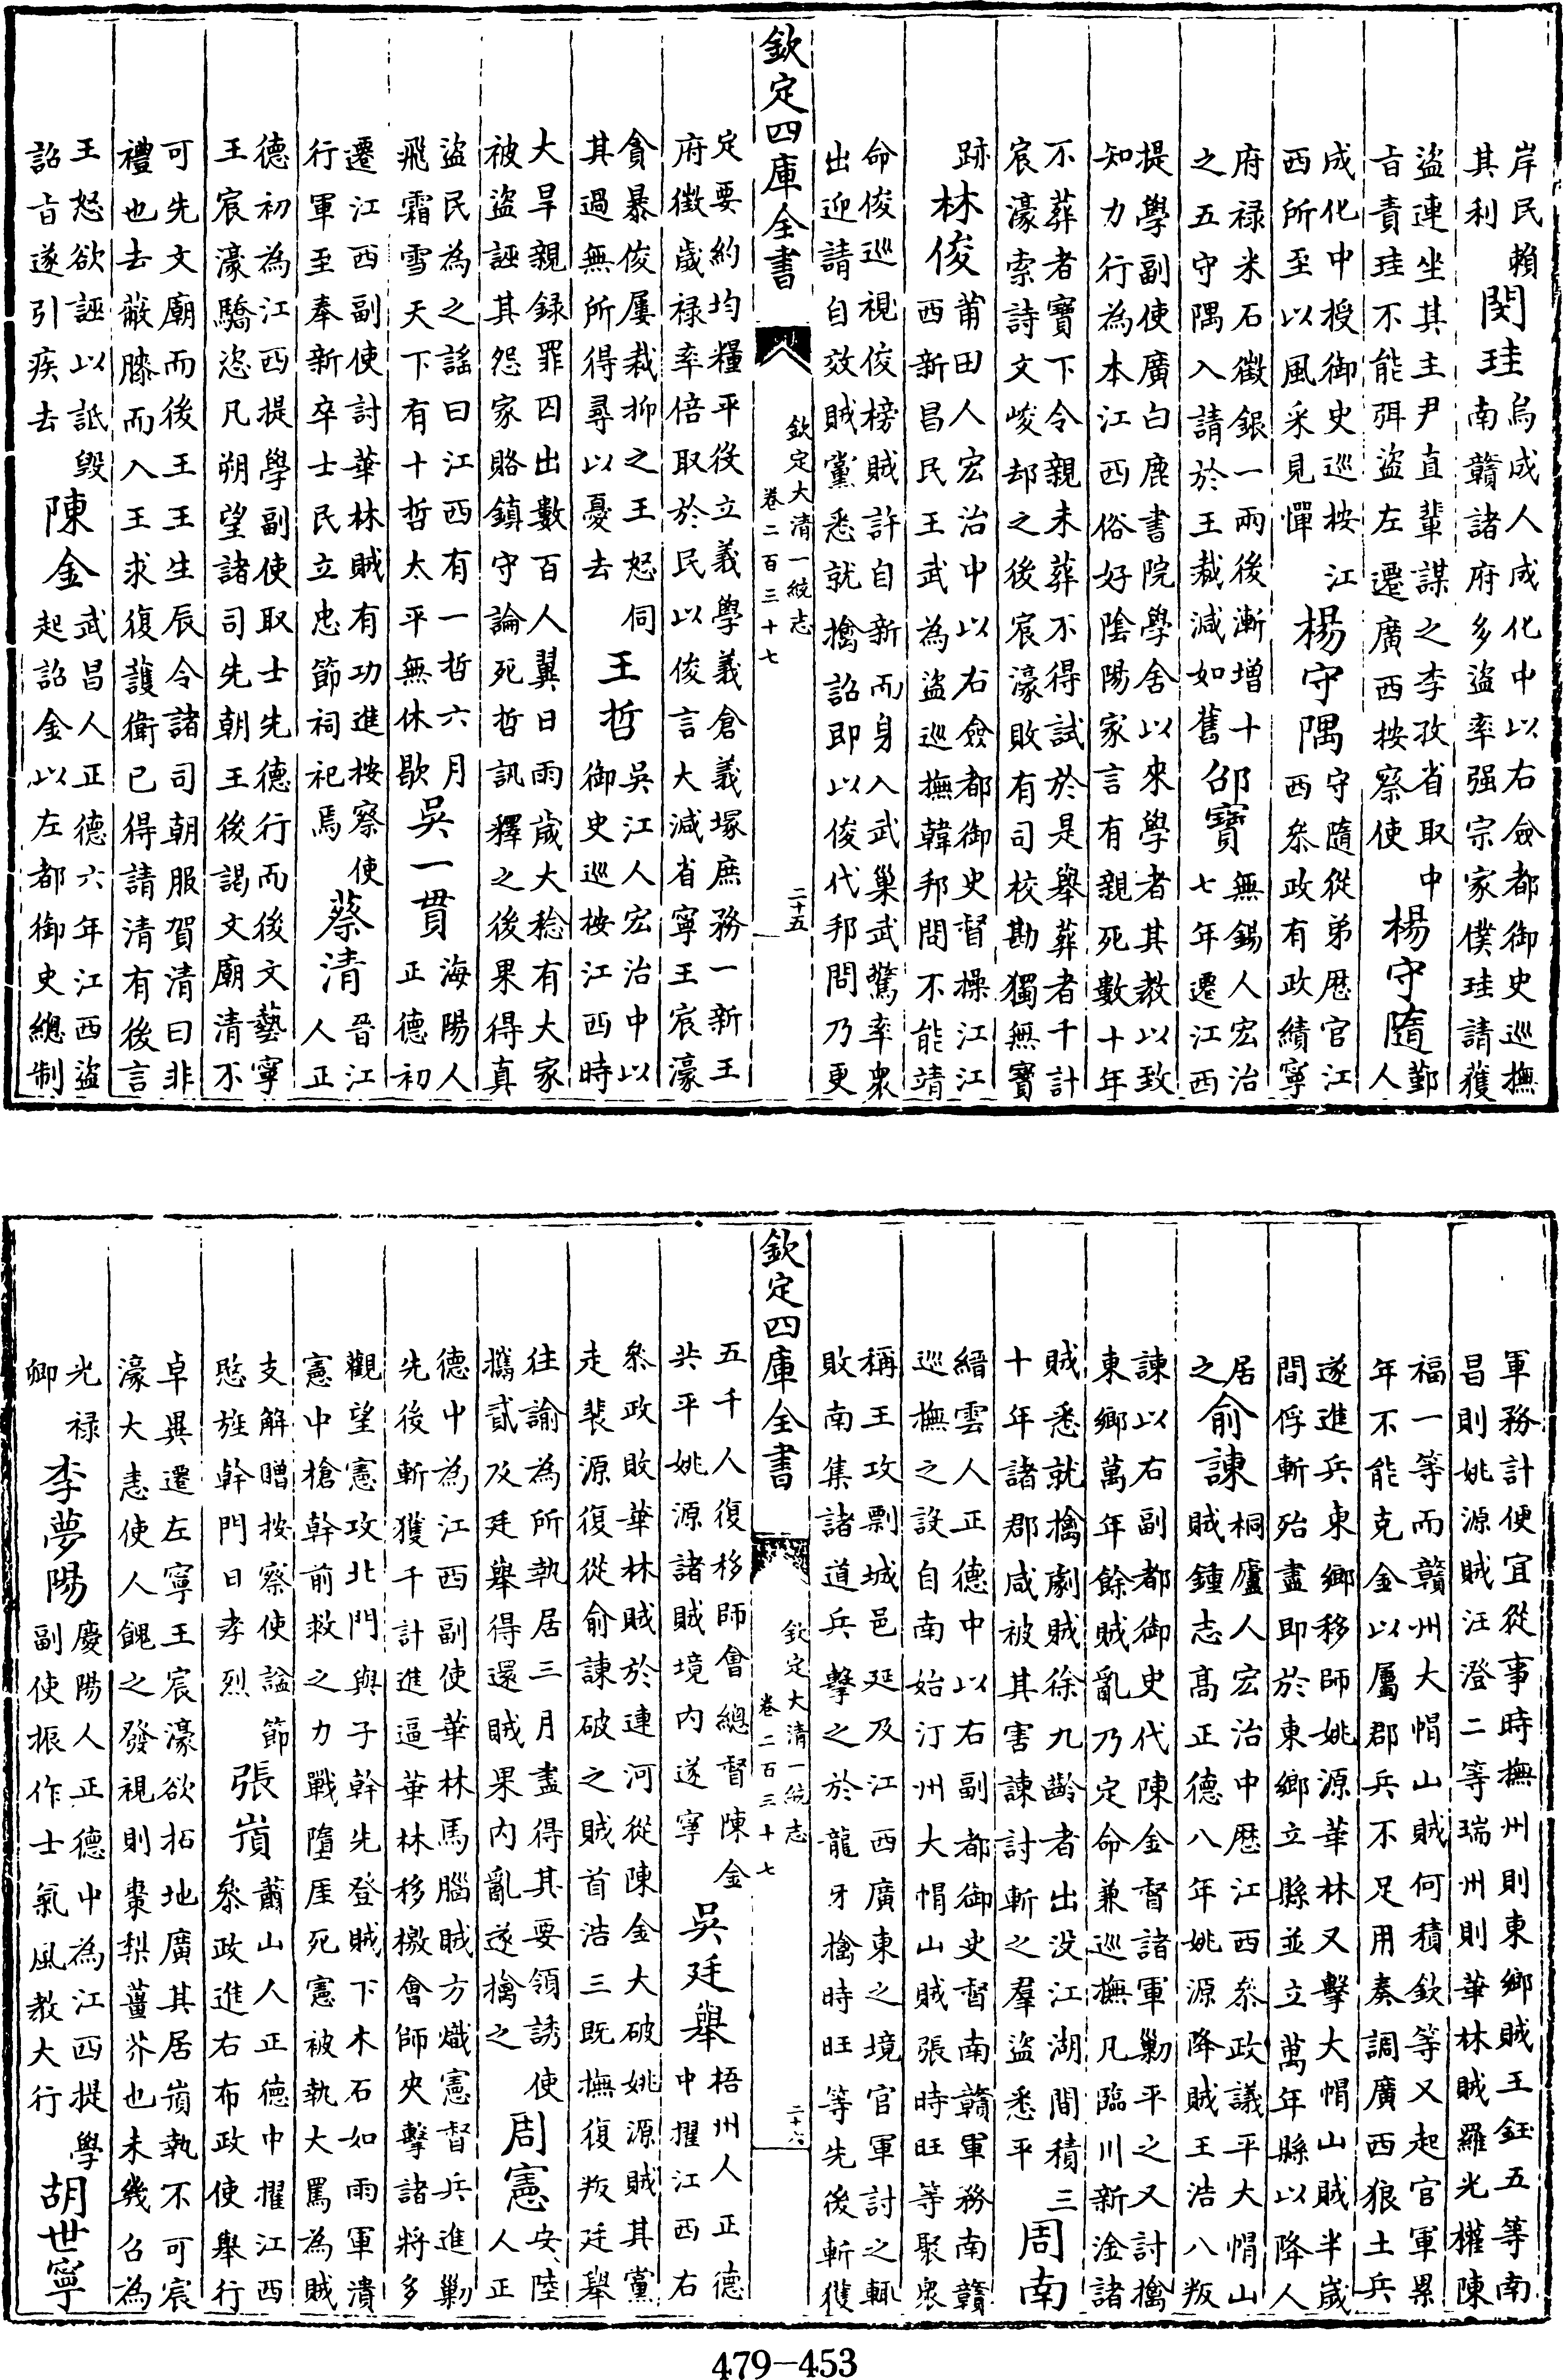 岸民賴
其利
閔珪
烏成人成化中以右僉都御史巡撫
南贛諸府多盜率强宗家僕珪請獲
盜連坐其主尹直輩謀之李孜省取中
旨責珪不能弭盜左遷廣西按察使
楊守隨
鄞
人
成化中授御史巡按江
西所至以風采見憚
楊守隅
守隨從弟歷官江
西叅政有政績寧
府禄米石徵銀一兩後漸增十
之五守隅入請於王裁減如舊
邵寶
無錫人宏治
七年遷江西
提學副使廣白鹿書院學舍以來學者其教以致
知力行為本江西俗好陰陽家言有親死數十年
不葬者寶下令親未葬不得試於是舉葬者千計
宸濠索詩文峻却之後宸濠敗有司校勘獨無寶
跡
林俊
莆田人宏治中以右僉都御史督操江江
西新昌民王武為盜巡撫韓邦問不能靖
命俊巡視俊榜賊許自新而身入武巢武驚率衆
出迎請自效賊黨悉就擒詔即以俊代邦問乃更
欽定四庫全書
欽定大清一統志
卷二百三十七
二十五
定要約均糧平役立義學義倉義塚庶務一新王
府徵歲禄率倍取於民以俊言大減省寧王宸濠
貪暴俊屢裁抑之王怒伺
其過無所得尋以憂去
王哲
吳江人宏治中以
御史巡按江西時
大旱親録罪囚出數百人翼日雨歲大稔有大家
被盜誣其怨家賂鎮守論死哲訊釋之後果得真
盜民為之謠曰江西有一哲六月
飛霜雪天下有十哲太平無休歇
吳一貫
海陽人
正德初
遷江西副使討華林賊有功進按察使
行軍至奉新卒士民立忠節祠祀焉
蔡清
晉江
人正
德初為江西提學副使取士先德行而後文藝寧
王宸濠驕恣凡朔望諸司先朝王後謁文廟清不
可先文廟而後王王生辰令諸司朝服賀清曰非
禮也去蔽膝而入王求復護衛已得請清有後言
王怒欲誣以詆毀
詔旨遂引疾去
陳金
武昌人正德六年江西盜
起詔金以左都御史總制
軍務計便宜從事時撫州則東鄉賊王鈺五等南
昌則姚源賊汪澄二等瑞州則華林賊羅光權陳
福一等而贛州大帽山賊何積欽等又起官軍累
年不能克金以屬郡兵不足用奏調廣西狼土兵
遂進兵東鄉移師姚源華林又擊大帽山賊半歲
間俘斬殆盡即於東鄉立縣並立萬年縣以降人
居
之
俞諫
桐廬人宏治中歷江西叅政議平大帽山
賊鍾志高正德八年姚源降賊王浩八叛
諫以右副都御史代陳金督諸軍勦平之又討擒
東鄉萬年餘賊亂乃定命兼巡撫凡臨川新淦諸
賊悉就擒劇賊徐九齡者出没江湖間積三
十年諸郡咸被其害諫討斬之羣盜悉平
周南
縉雲人正德中以右副都御史督南贛軍務南贛
巡撫之設自南始汀州大帽山賊張時旺等聚衆
稱王攻剽城邑延及江西廣東之境官軍討之輒
敗南集諸道兵擊之於龍牙擒時旺等先後斬獲
欽定四庫全書
欽定大清一統志
卷二百三十七
二十六
五千人復移師會總督陳金
共平姚源諸賊境内遂寧
吳廷舉
梧州人正德
中擢江西右
叅政敗華林賊於連河從陳金大破姚源賊其黨
走裴源復從俞諫破之賊首浩三既撫復叛廷舉
往諭為所執居三月盡得其要領誘使
攜貳及廷舉得還賊果内亂遂擒之
周憲
安陸
人正
德中為江西副使華林馬腦賊方熾憲督兵進勦
先後斬獲千計進逼華林移檄會師夾擊諸將多
觀望憲攻北門與子幹先登賊下木石如雨軍潰
憲中槍幹前救之力戰墮厓死憲被執大罵為賊
支解贈按察使諡節
愍旌幹門曰孝烈
張嵿
蕭山人正德中擢江西
叅政進右布政使舉行
卓異遷左寧王宸濠欲拓地廣其居嵿執不可宸
濠大恚使人餽之發視則棗梨薑芥也未幾召為
光禄
卿
李夢陽
慶陽人正德中為江西提學
副使振作士氣風教大行
胡世寧
479—453